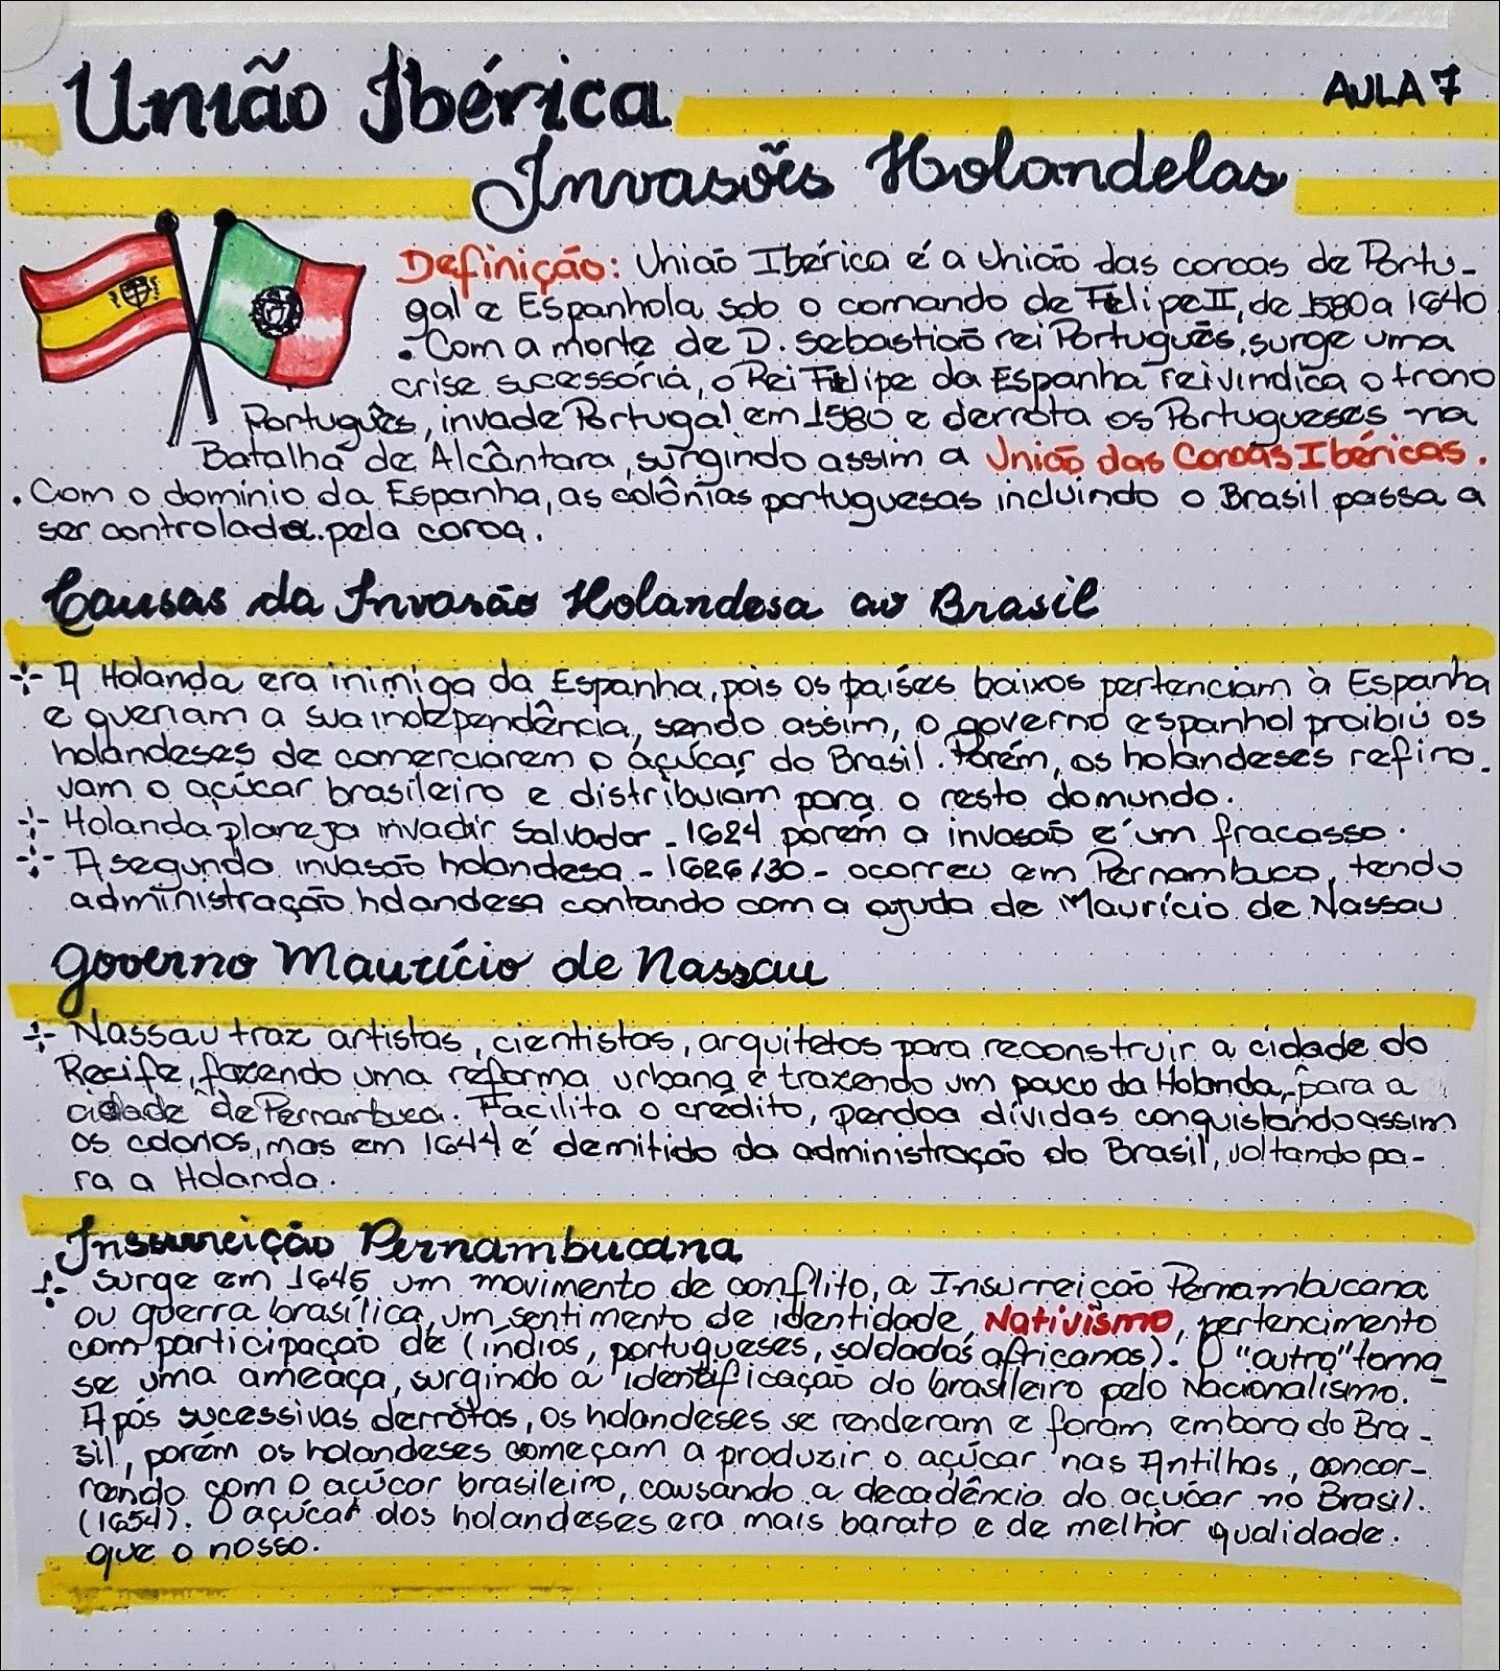 União Ibérica
AULA 7
Invasões Holandelas
Definição: União Ibérica é a união das coroas de Portu-
gal e Espanhola sob o comando de Felipe II, de 1580 a 1640
. Com a morte de D. Sebastião rei Português, surge uma
crise sucessória, o Rei Felipe da Espanha reivindica o trono
Português, invade Portugal em 1580 e derrota os Portugueses na
Batalha de Alcântara, surgindo assim a União das Coroas Ibéricas.
. Com o domínio da Espanha, as colônias portuguesas incluindo o Brasil passa a
ser controlada pela coroa.
Causas da Invasão Holandesa ao Brasil
A Holanda era inimiga da Espanha, pois os países baixos pertenciam à Espanha
e queriam a sua independência, sendo assim, o governo espanhol proibiu os
holandeses de comerciarem o açúcar do Brasil. Porém, os holandeses refina-
vam o açúcar brasileiro e distribuiam para o resto do mundo.
Holanda planeja invadir Salvador - 1624 porém a invasão é um fracasso.
A segunda invasão holandesa - 1626/30 - ocorreu em Pernambuco, tendo
administração holandesa contando com a ajuda de Maurício de Nassau
Governo Maurício de Nassau
Nassau traz artistas, cientistas, arquitetos para reconstruir a cidade do
Recife, fazendo uma reforma urbana e trazendo um pouco da Holanda, para a
cidade de Pernambuco. Facilita o crédito, perdoa dívidas conquistando assim
os colonos, mas em 1644 é demitido da administração do Brasil, voltando pa-
ra a Holanda.
Insurreição Pernambucana
Surge em 1645 um movimento de conflito, a Insurreição Pernambucana
ou guerra brasílica, um sentimento de identidade, Nativismo, pertencimento
com participação de (índios, portugueses, soldados africanos). O "outro" torna-
se uma ameaça, surgindo a identificação do brasileiro pelo Nacionalismo.
Após sucessivas derrotas, os holandeses se renderam e foram embora do Bra-
sil, porém os holandeses começam a produzir o açúcar nas Antilhas, concor-
rendo com o açúcar brasileiro, causando a decadência do açúcar no Brasil.
(1654). O açúcar dos holandeses era mais barato e de melhor qualidade.
que o nosso.